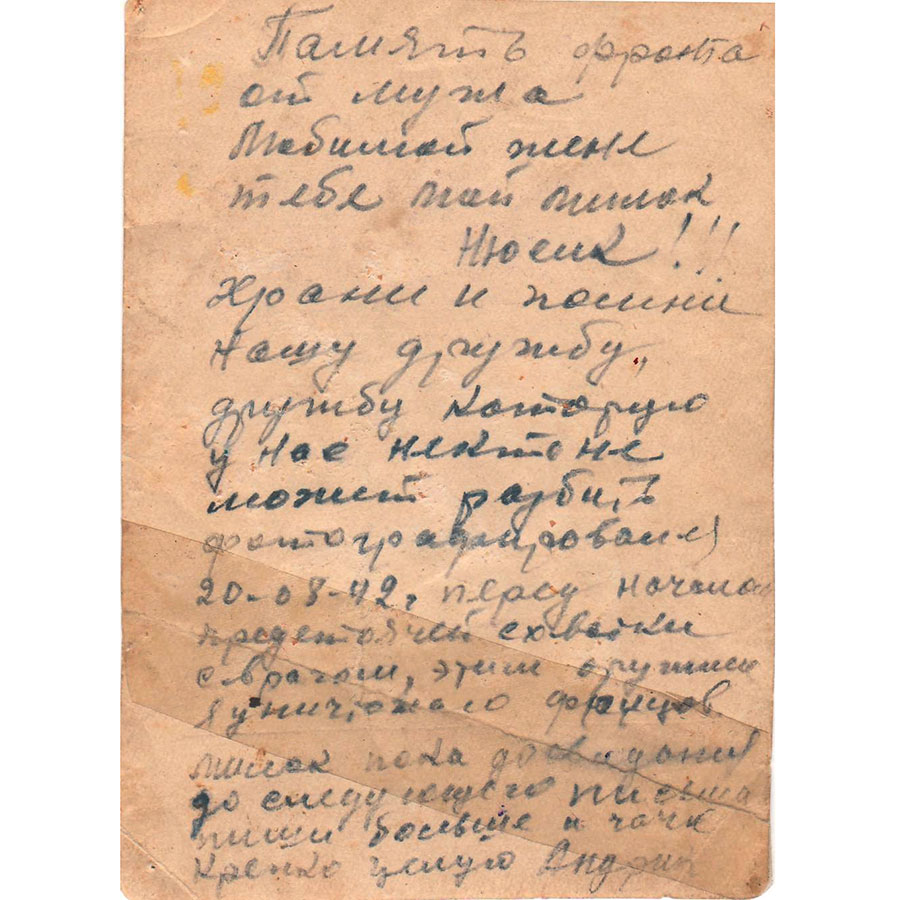 Память фронта
от мужа
Любимой жене
тебе мой милок
Нюсик!!!
Храни и помни
нашу дружбу,
дружбу которую
у нас некто не
может разбить
фотографировался
20-08-42г перед началом
предстоячей схватки
с врагом, этим оружием
я уничтожаю фрицов.
милок пока досвидания
до следующего письма
пиши больше и чаче
Крепко целую Андрий